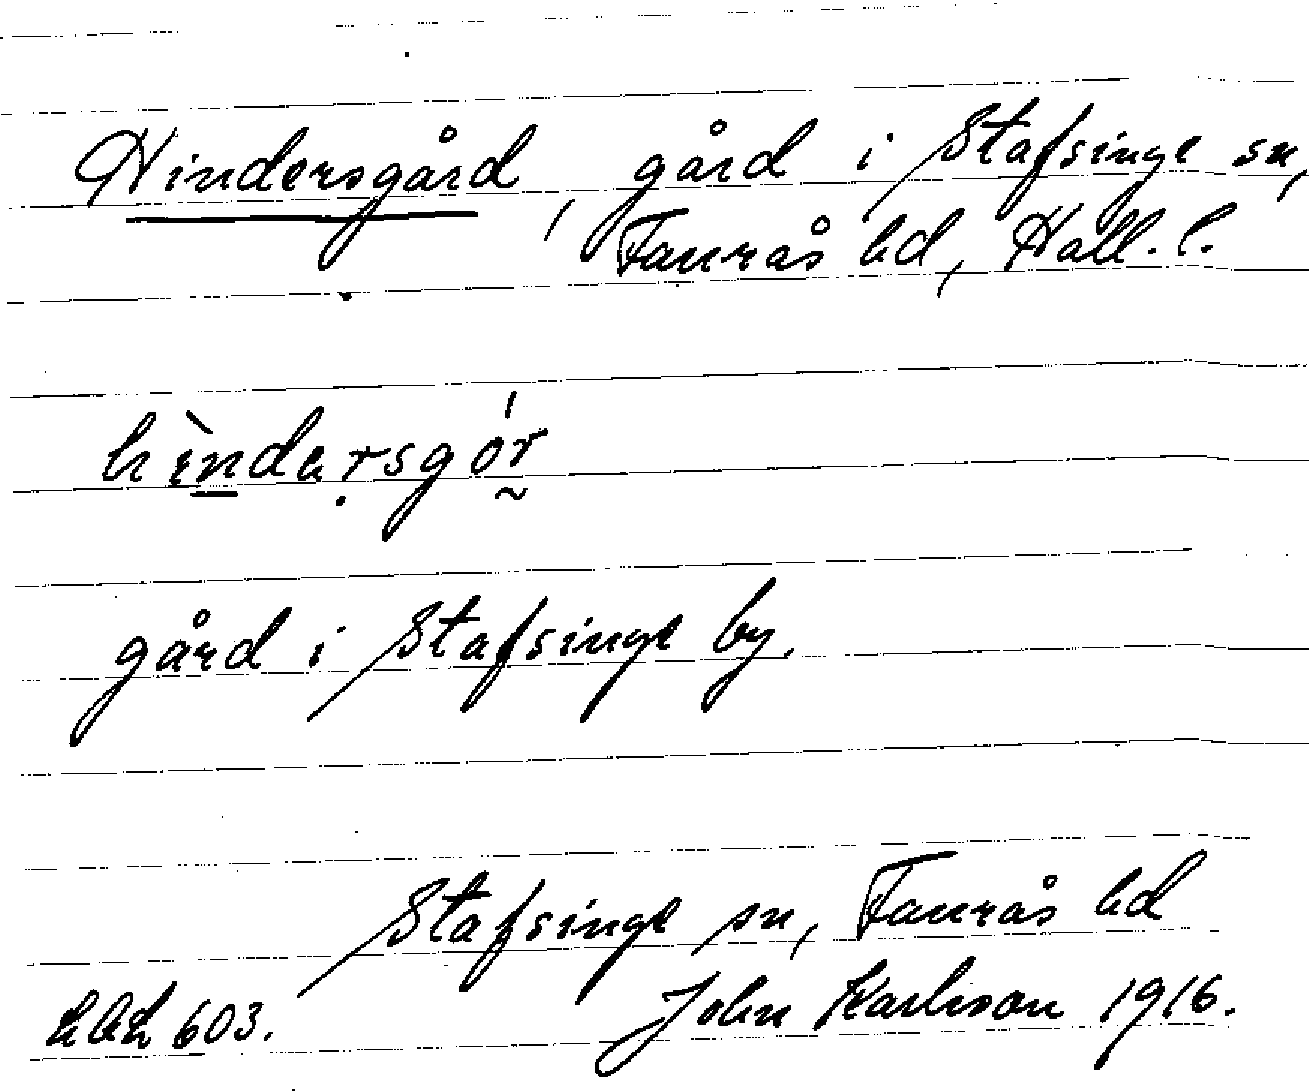 Hindersgård, gård i Stafsinge sn,
Faurås hd, Hall. l.
hìndarsgór
gård i Stafsinge by.
Stafsinge sn, Faurås hd
603. John Karlsson 1916.